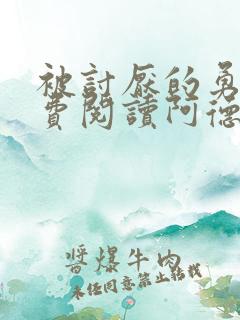 被討厭的勇
費閱讀阿德
醬爆牛肉
未經同意禁止轉載